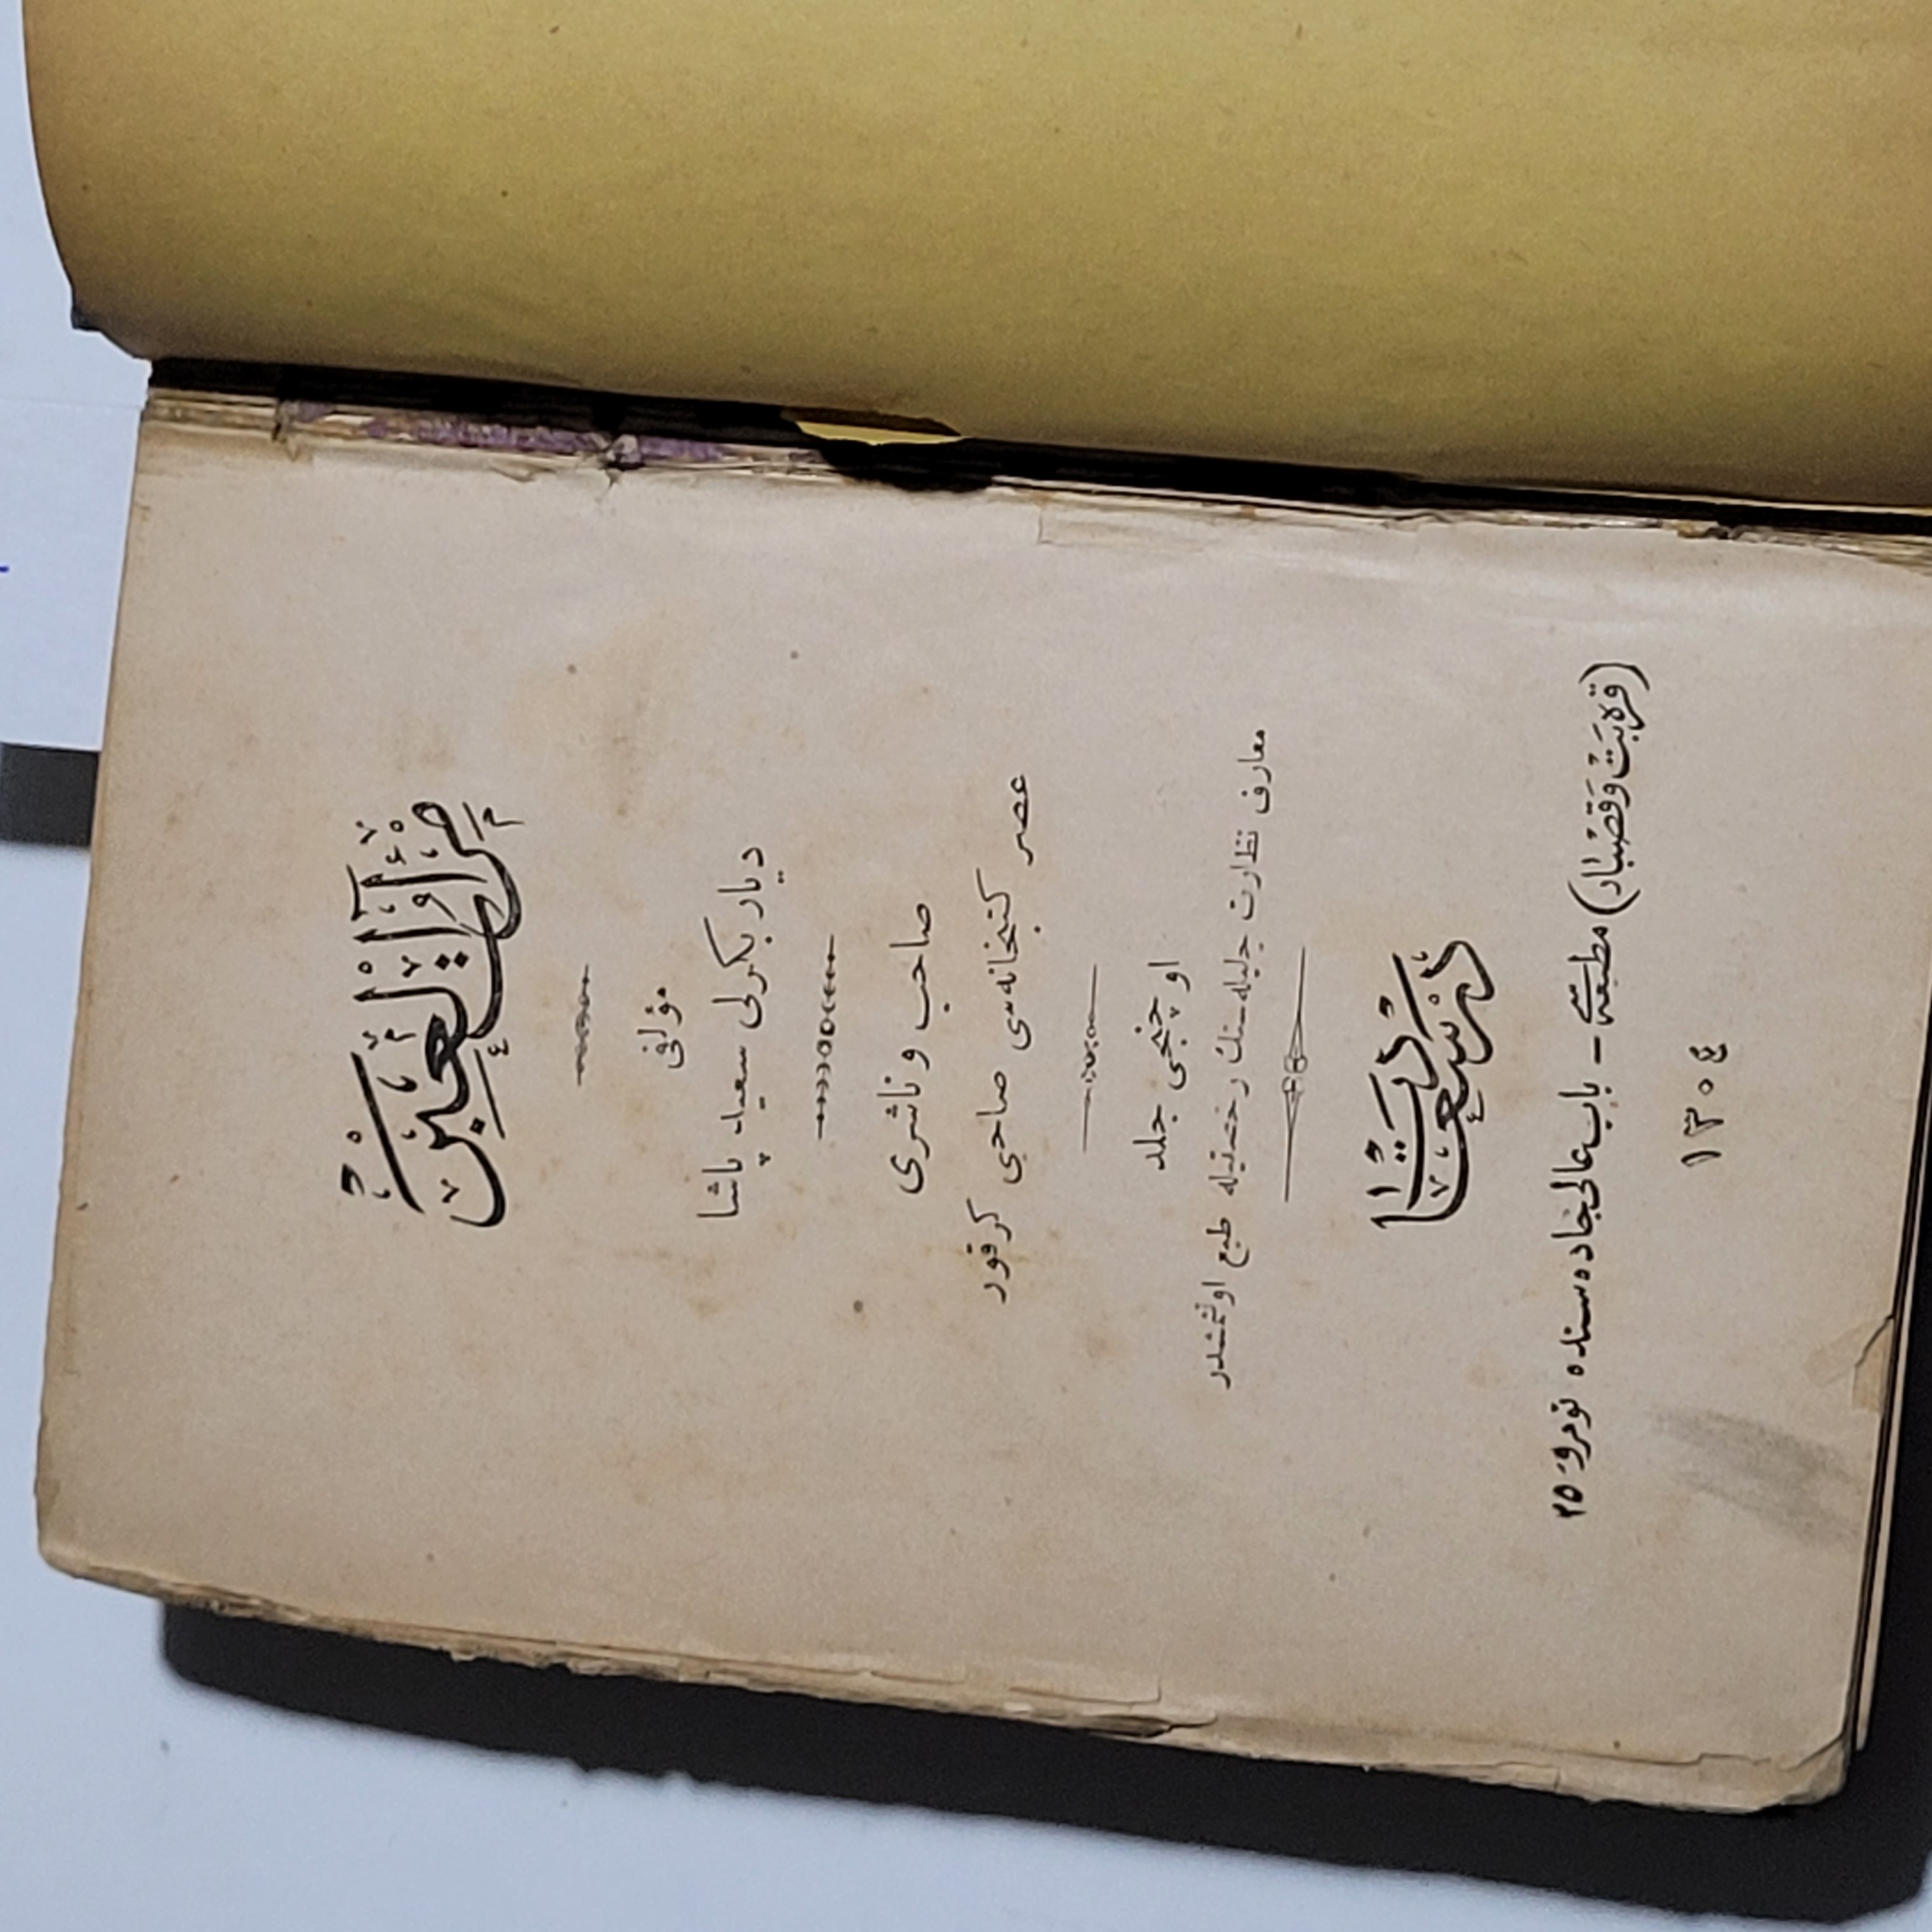 مرآة العبر
مؤلفی
دیار بکرلی سعید پاشا
صاحب و ناشری
عصر کتبخانه‌سی صاحبی کرقور
اوچنجی جلد
معارف نظارت جلیله‌سنك رخصتیله طبع اولنمشدر
درسعادت
(قره‌بت و قصبار) مطبعه‌سی – باب عالی جاده‌سنده نومرو ٢٥
١٣٠٤